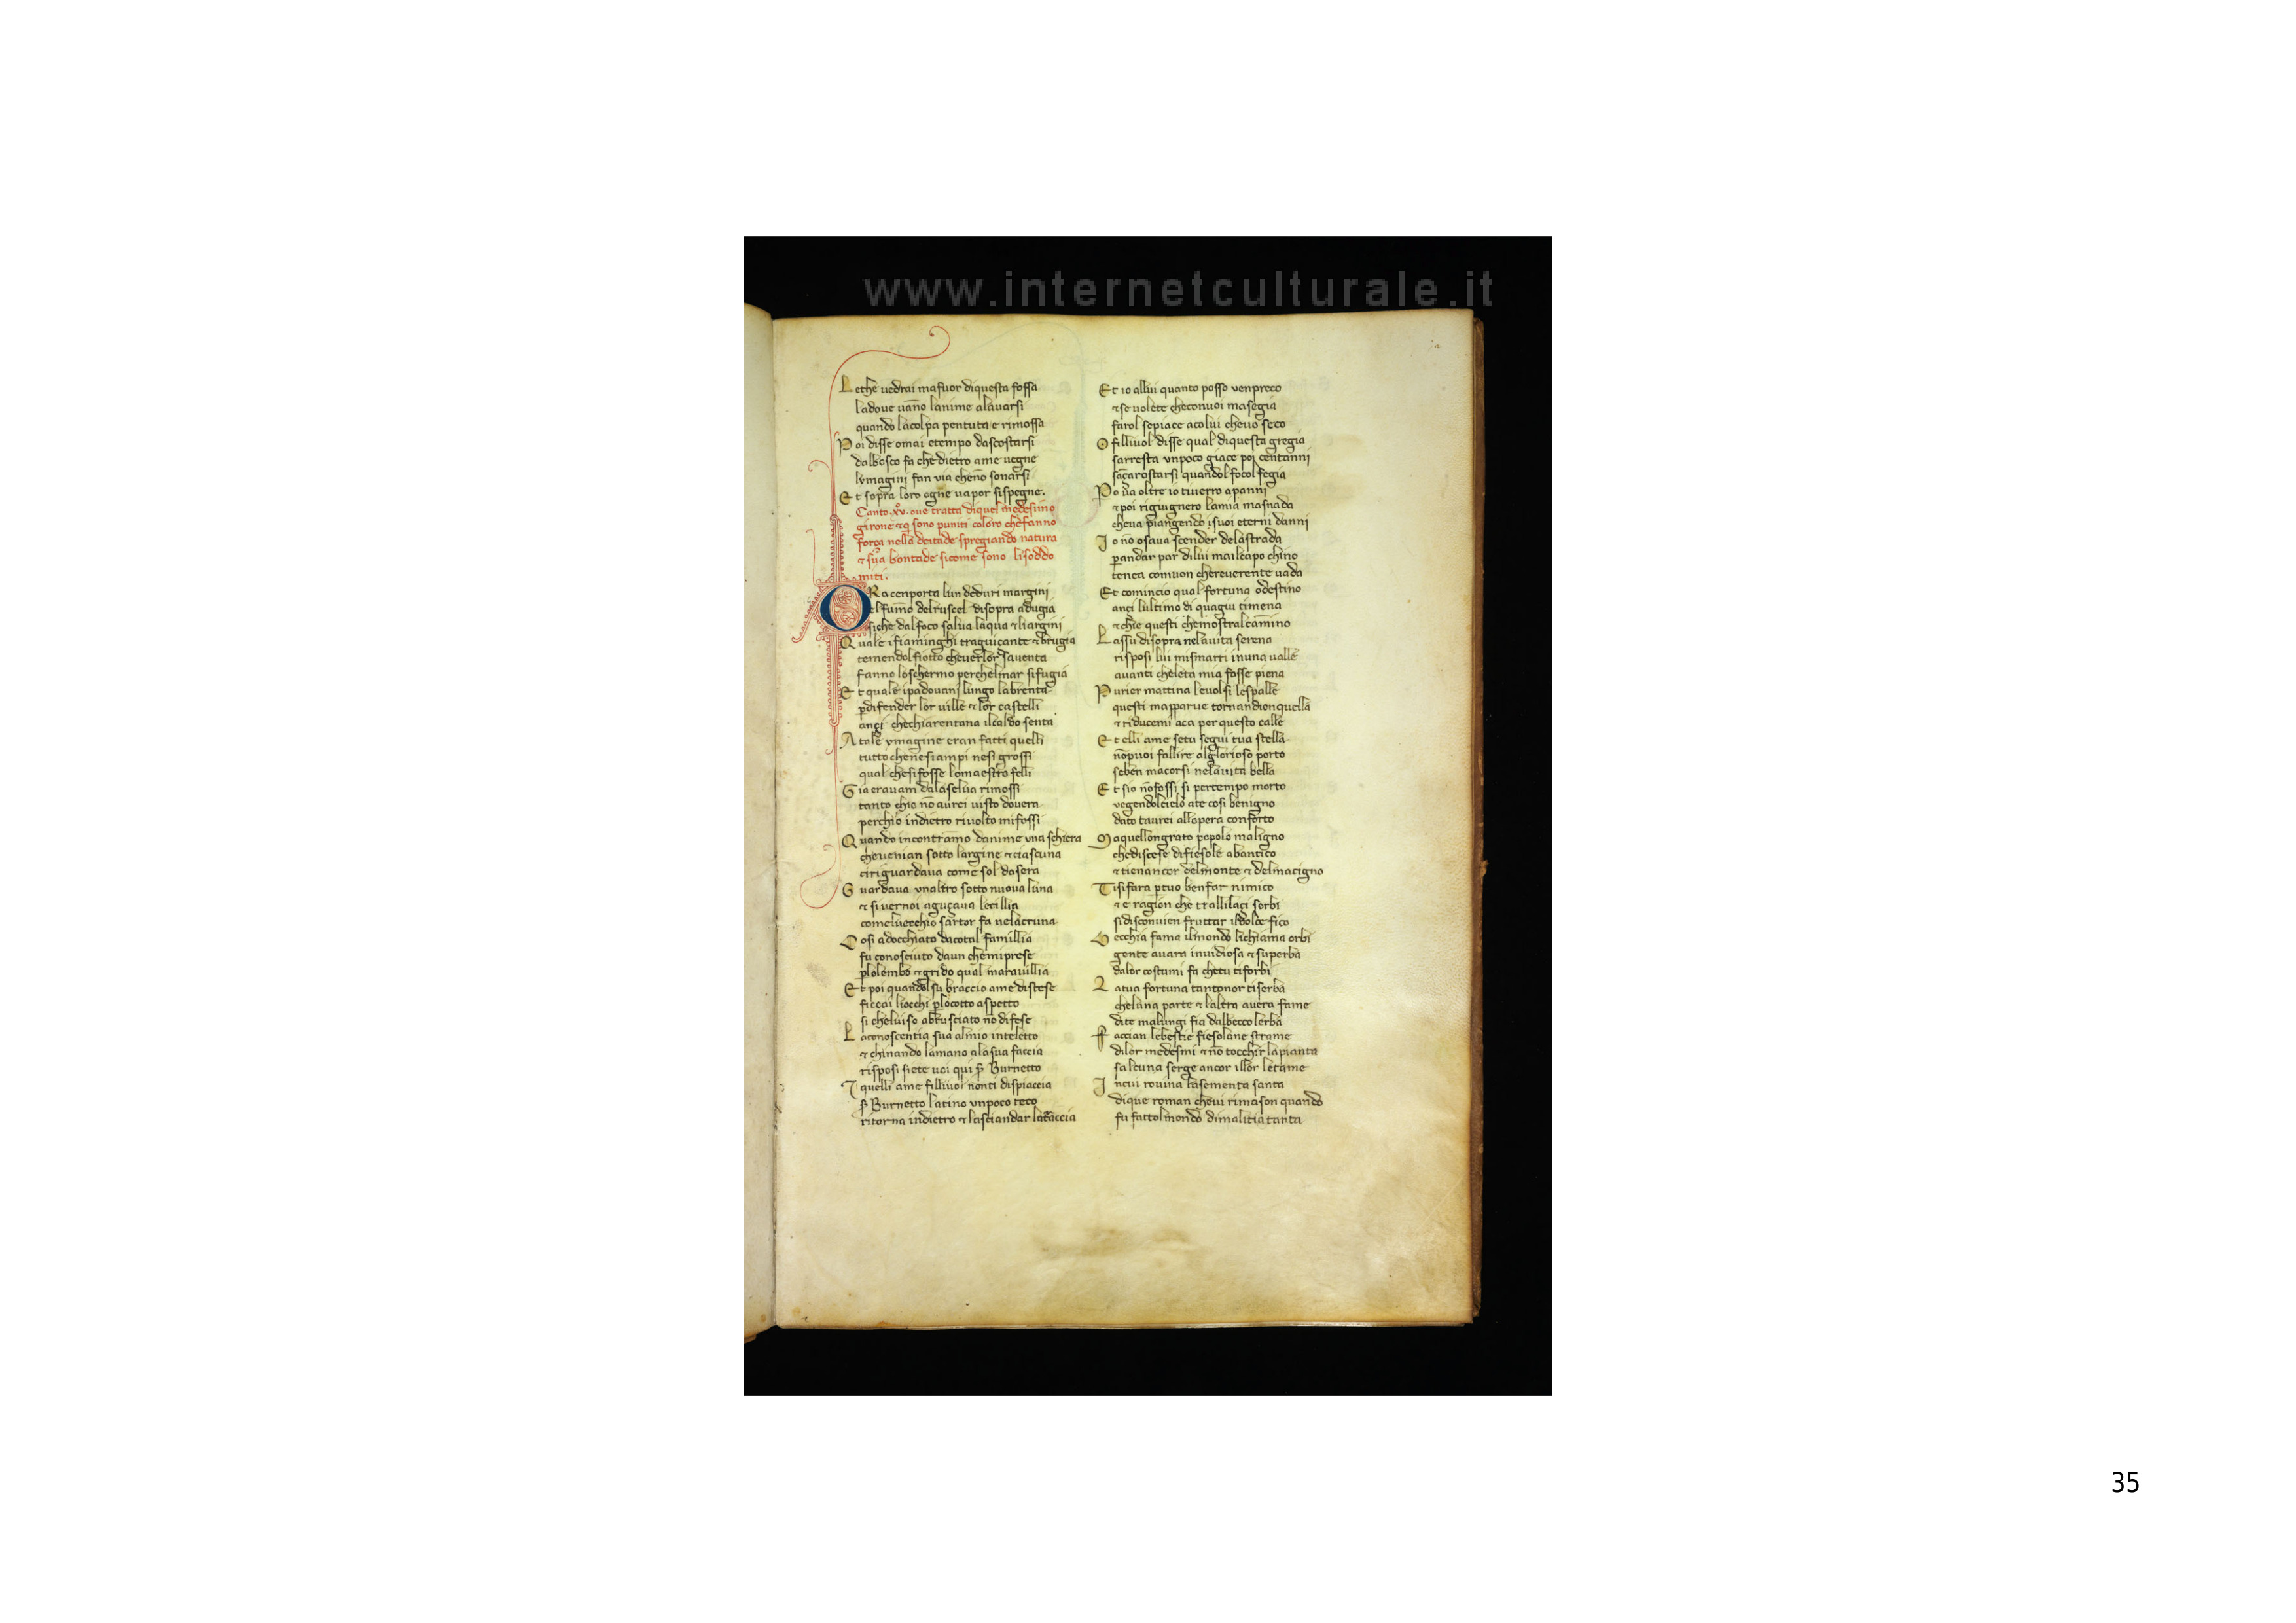 www.internetculturale.it
Lethe uedrai mafuor diquesta fossa
ladoue uāno lanime alauarsi
quando lacolpa pentuta e rimossa
Poi disse omai etempo dascostarsi
dalbosco fa che dietro ame uegne
lymagini fan via chenō sonarsi
Et sopra loro ogne uapor sispegne.
Canto .xv. oue tratta diquel medesimo
girone & q̄ sono puniti coloro chefanno
força nella deitade spregiando natura
& sua bontade sicome sono lisoddo
miti.
ORa cenporta lun deduri margini
el fumo delruscel disopra adugia
siche dalfoco salua laqua & liargini
Quale ifiaminghi traguiçante & brugia
temendol fiotto cheuerlor sauenta
fanno loschermo perchelmar sifugia
Et quale ipadouani lungo labrenta
ꝑdifender lor uille & lor castelli
ançi chechiarentana ilcaldo senta
A tale ymagine eran fatti quelli
tutto chene siampi nesi grossi
qual chesifosse lomaestro felli
Gia erauam dalaselua rimossi
tanto chio nō aurei uisto douera
perchio indietro riuolto mifossi
Quando incontrāmo danime vna schiera
cheuenian sotto largine & ciascuna
ciriguardaua come sol dasera
Guardaua vnaltro sotto nuoua luna
& si uernoi aguçaua lecillia
comeluecchio sartor fa nelacruna
Cosi adocchiato dacotal famillia
fu conosciuto daun chemiprese
ꝑlolembo & grido qual marauillia
Et poi quandol su braccio ame distese
ficcai liocchi ꝑlocotto aspetto
si cheluiso abrusciato nō difese
Laconoscentia sua almio inteletto
& chinando lamano alasua faccia
risposi siete uoi qui s̄ Burnetto
I quelli ame filliuol nonti dispiaccia
s̄ Burnetto latino vnpoco teco
ritorna indietro & lasciandar latraccia
Et io allui quanto posso uenpreco
& se uolete checonuoi masegia
farol sepiace acolui cheuo seco
O filliuol disse qual diquesta gregia
sarresta vnpoco giace poi centanni
sāçarostarsi quandol focol fegia
Po ua oltre io tiuerro apanni
& poi rigiugnero lamia masnada
cheua piangendo isuoi eterni danni
Io nō osaua scender delastrada
ꝑandar par dilui mailcapo chino
tenea comuon chereuerente uada
Et comincio qual fortuna odestino
ançi lultimo di quagiu timena
& chie questi chemostralcāmino
Lassu disopra nelauita serena
risposi lui mismarri inuna ualle
auanti cheleta mia fosse piena
Purier mattina leuolsi lespalle
questi mapparue tornandionquella
& riducemi aca per questo calle
Et elli ame setu segui tua stella
nōpuoi fallire alglorioso porto
seben macorsi nelauita bella
Et sio nōfossi si pertempo morto
vegendolcielo ate cosi benigno
dato taurei allopera conforto
Maquellongrato popolo maligno
chediscese difiesole abantico
& tienancor delmonte & delmacigno
Tisifara ꝑtuo benfar nimico
& e ragion che trallilaçi sorbi
sidisconuien fruttar ildolce fico
Vecchia fama ilmondo lichiama orbi
gente auara inuidiosa & superba
dalor costumi fa chetu tiforbi
La tua fortuna tantonor tiserba
cheluna parte & laltra auera fame
dite malungi fia dalbecco lerba
Faccian lebestie fiesolane strame
dilor medesmi & nō tocchir lapianta
salcuna serge ancor illor letame
Incui rouina lasementa santa
dique roman cheui rimason quando
fu fattolmondo dimalitia tanta
35